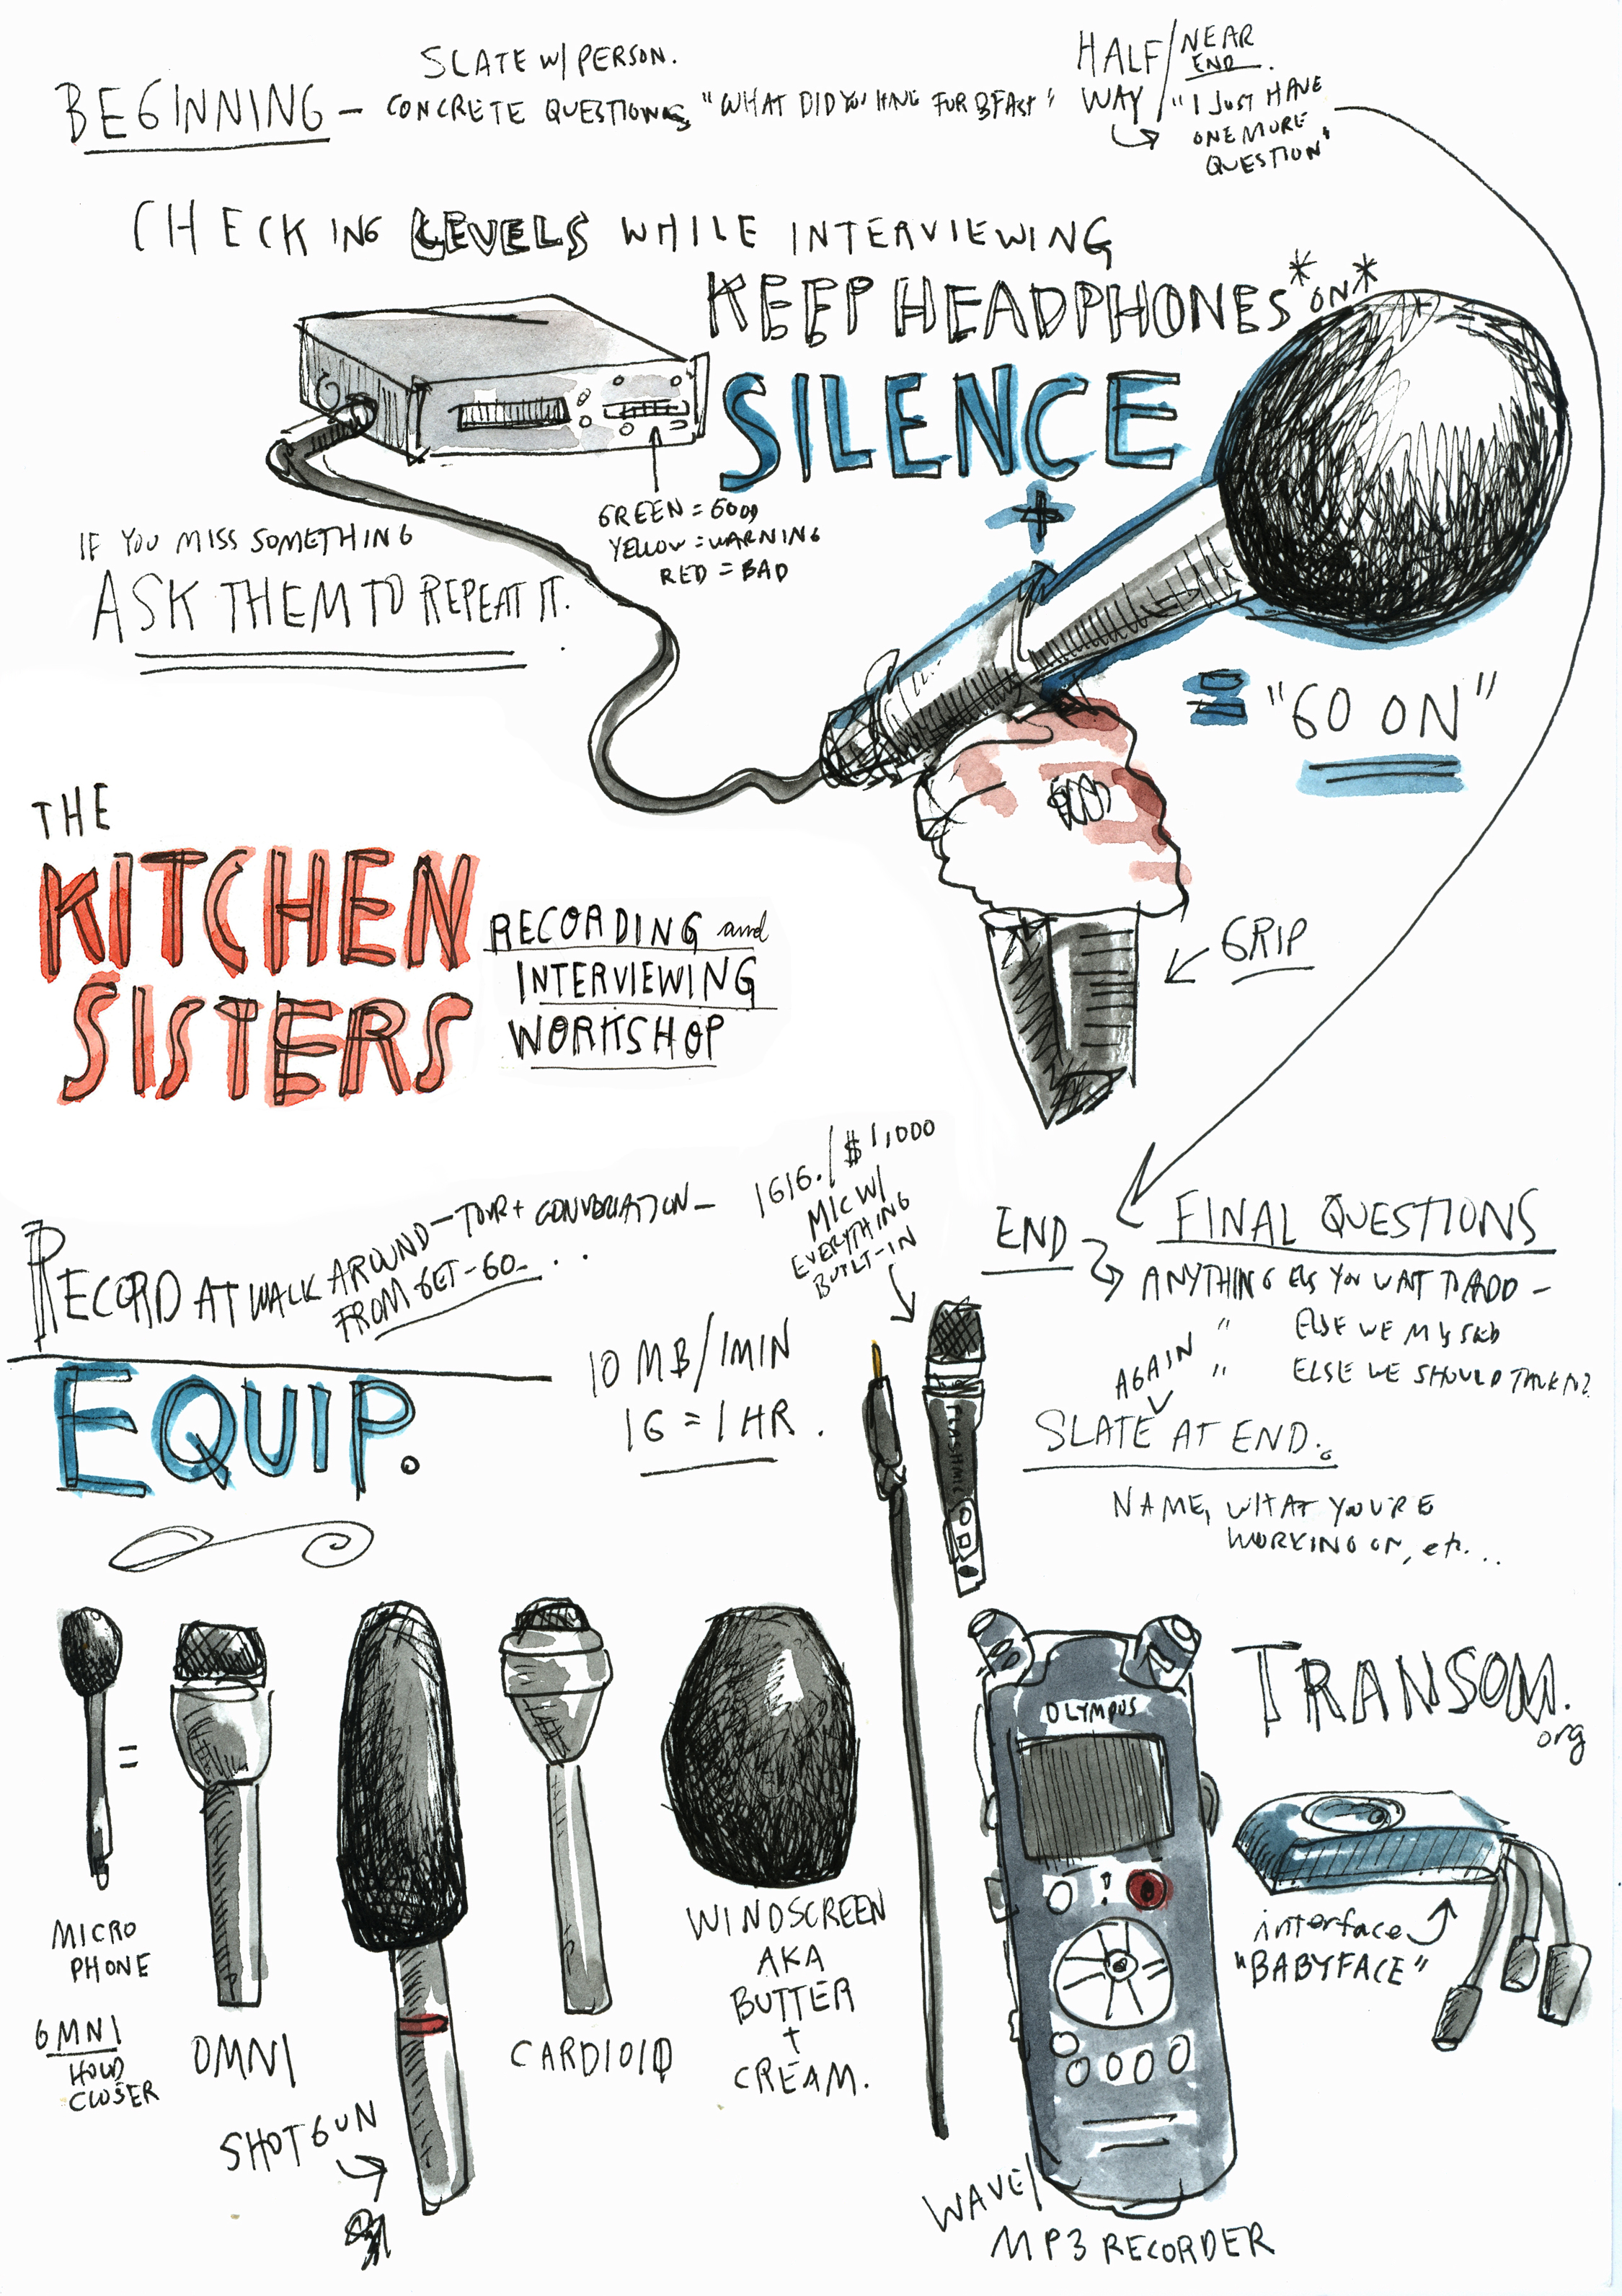 SLATE W/ PERSON.
BEGINNING – CONCRETE QUESTIONS "WHAT DID YOU HAVE FUR BFAST"
HALF WAY / NEAR END.
"I JUST HAVE
ONE MORE
QUESTION"
CHECKING LEVELS WHILE INTERVIEWING
KEEP HEADPHONES *ON*
SILENCE
+
= "GO ON"
GREEN = GOOD
YELLOW = WARNING
RED = BAD
IF YOU MISS SOMETHING
ASK THEM TO REPEAT IT.
THE
KITCHEN
SISTERS
RECORDING and
INTERVIEWING
WORKSHOP
GRIP
RECORD AT WALK AROUND – TOUR + CONVERSATION –
FROM GET-GO...
1GIG. / $1,000
MIC W/
EVERYTHING
BUILT-IN
END
FINAL QUESTIONS
ANYTHING ELS YOU WANT TO ADD –
" ELSE WE MISSED
" ELSE WE SHOULD TALK TO?
AGAIN
SLATE AT END.
NAME, WHAT YOU'RE
WORKING ON, etc...
EQUIP.
10 MB/1MIN
1G = 1 HR.
FLASHMIC
OLYMPUS
TRANSOM.
org
=
MICRO
PHONE
OMNI
HOLD
CLOSER
OMNI
SHOTGUN
CARDIOID
WINDSCREEN
AKA
BUTTER
+
CREAM.
interface
"BABYFACE"
WAVE/
MP3 RECORDER